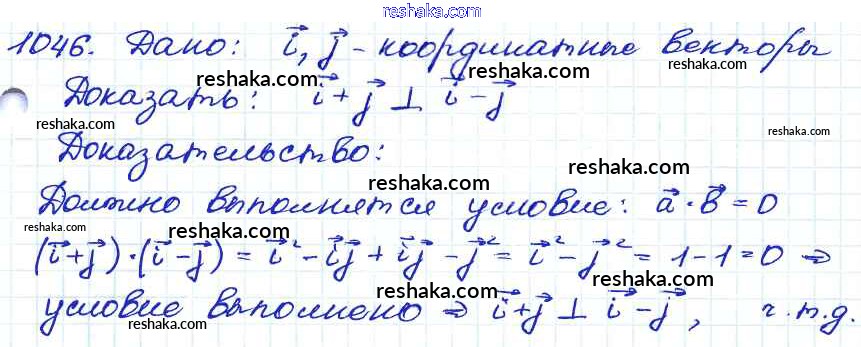 reshaka.com
1046. Дано: i⃗, j⃗ - координатные векторы
reshaka.com reshaka.com
Доказать: i⃗+j⃗ ⊥ i⃗-j⃗
reshaka.com reshaka.com
Доказательство:
reshaka.com reshaka.com
Должно выполнятся условие: a⃗·b⃗=0
reshaka.com reshaka.com
(i⃗+j⃗)·(i⃗-j⃗)=i⃗²-i⃗j⃗+i⃗j⃗-j⃗²=i⃗²-j⃗²=1-1=0 ⇒
reshaka.com reshaka.com
условие выполнено ⇒ i⃗+j⃗ ⊥ i⃗-j⃗, ч.т.д.
reshaka.com reshaka.com